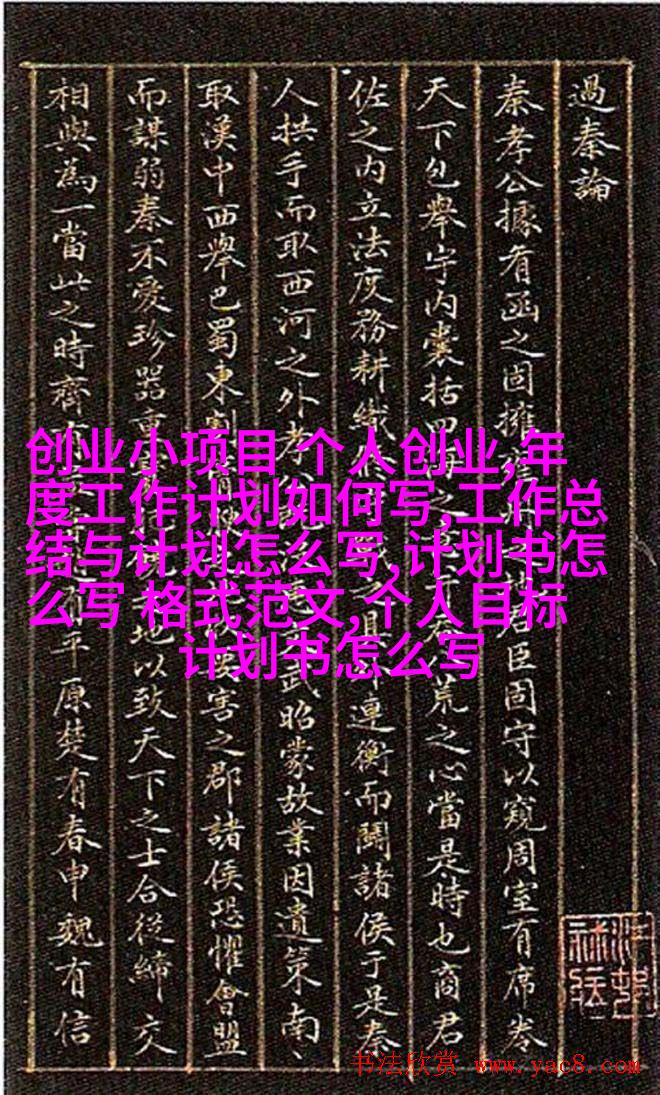 過秦論
秦孝公據有函之固擁 君臣固守以窺周室有席卷
天下包舉宇内囊括四 之 荒之心當是時也商君
佐之内立法度務耕織 之具 連衡而鬪諸侯于是秦
人拱手而取西河之外孝 武昭蒙故業因遺策南、
取漢中西舉巴蜀東割 害之郡諸侯恐懼會盟
而謀弱秦不愛珍器重 地以致天下之士合從締交
相與為一當此之時齊有 平原楚有春申魏有信
创业小项目 个人创业,年
度工作计划如何写,工作总
结与计划怎么写,计划书怎
么写 格式范文,个人目标
计划书怎么写
书法欣赏 www.yac8.com